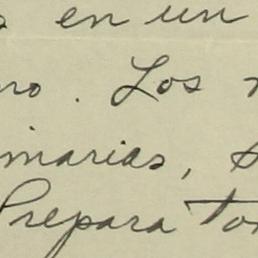 en un
no. Los
imarias,
Prepara